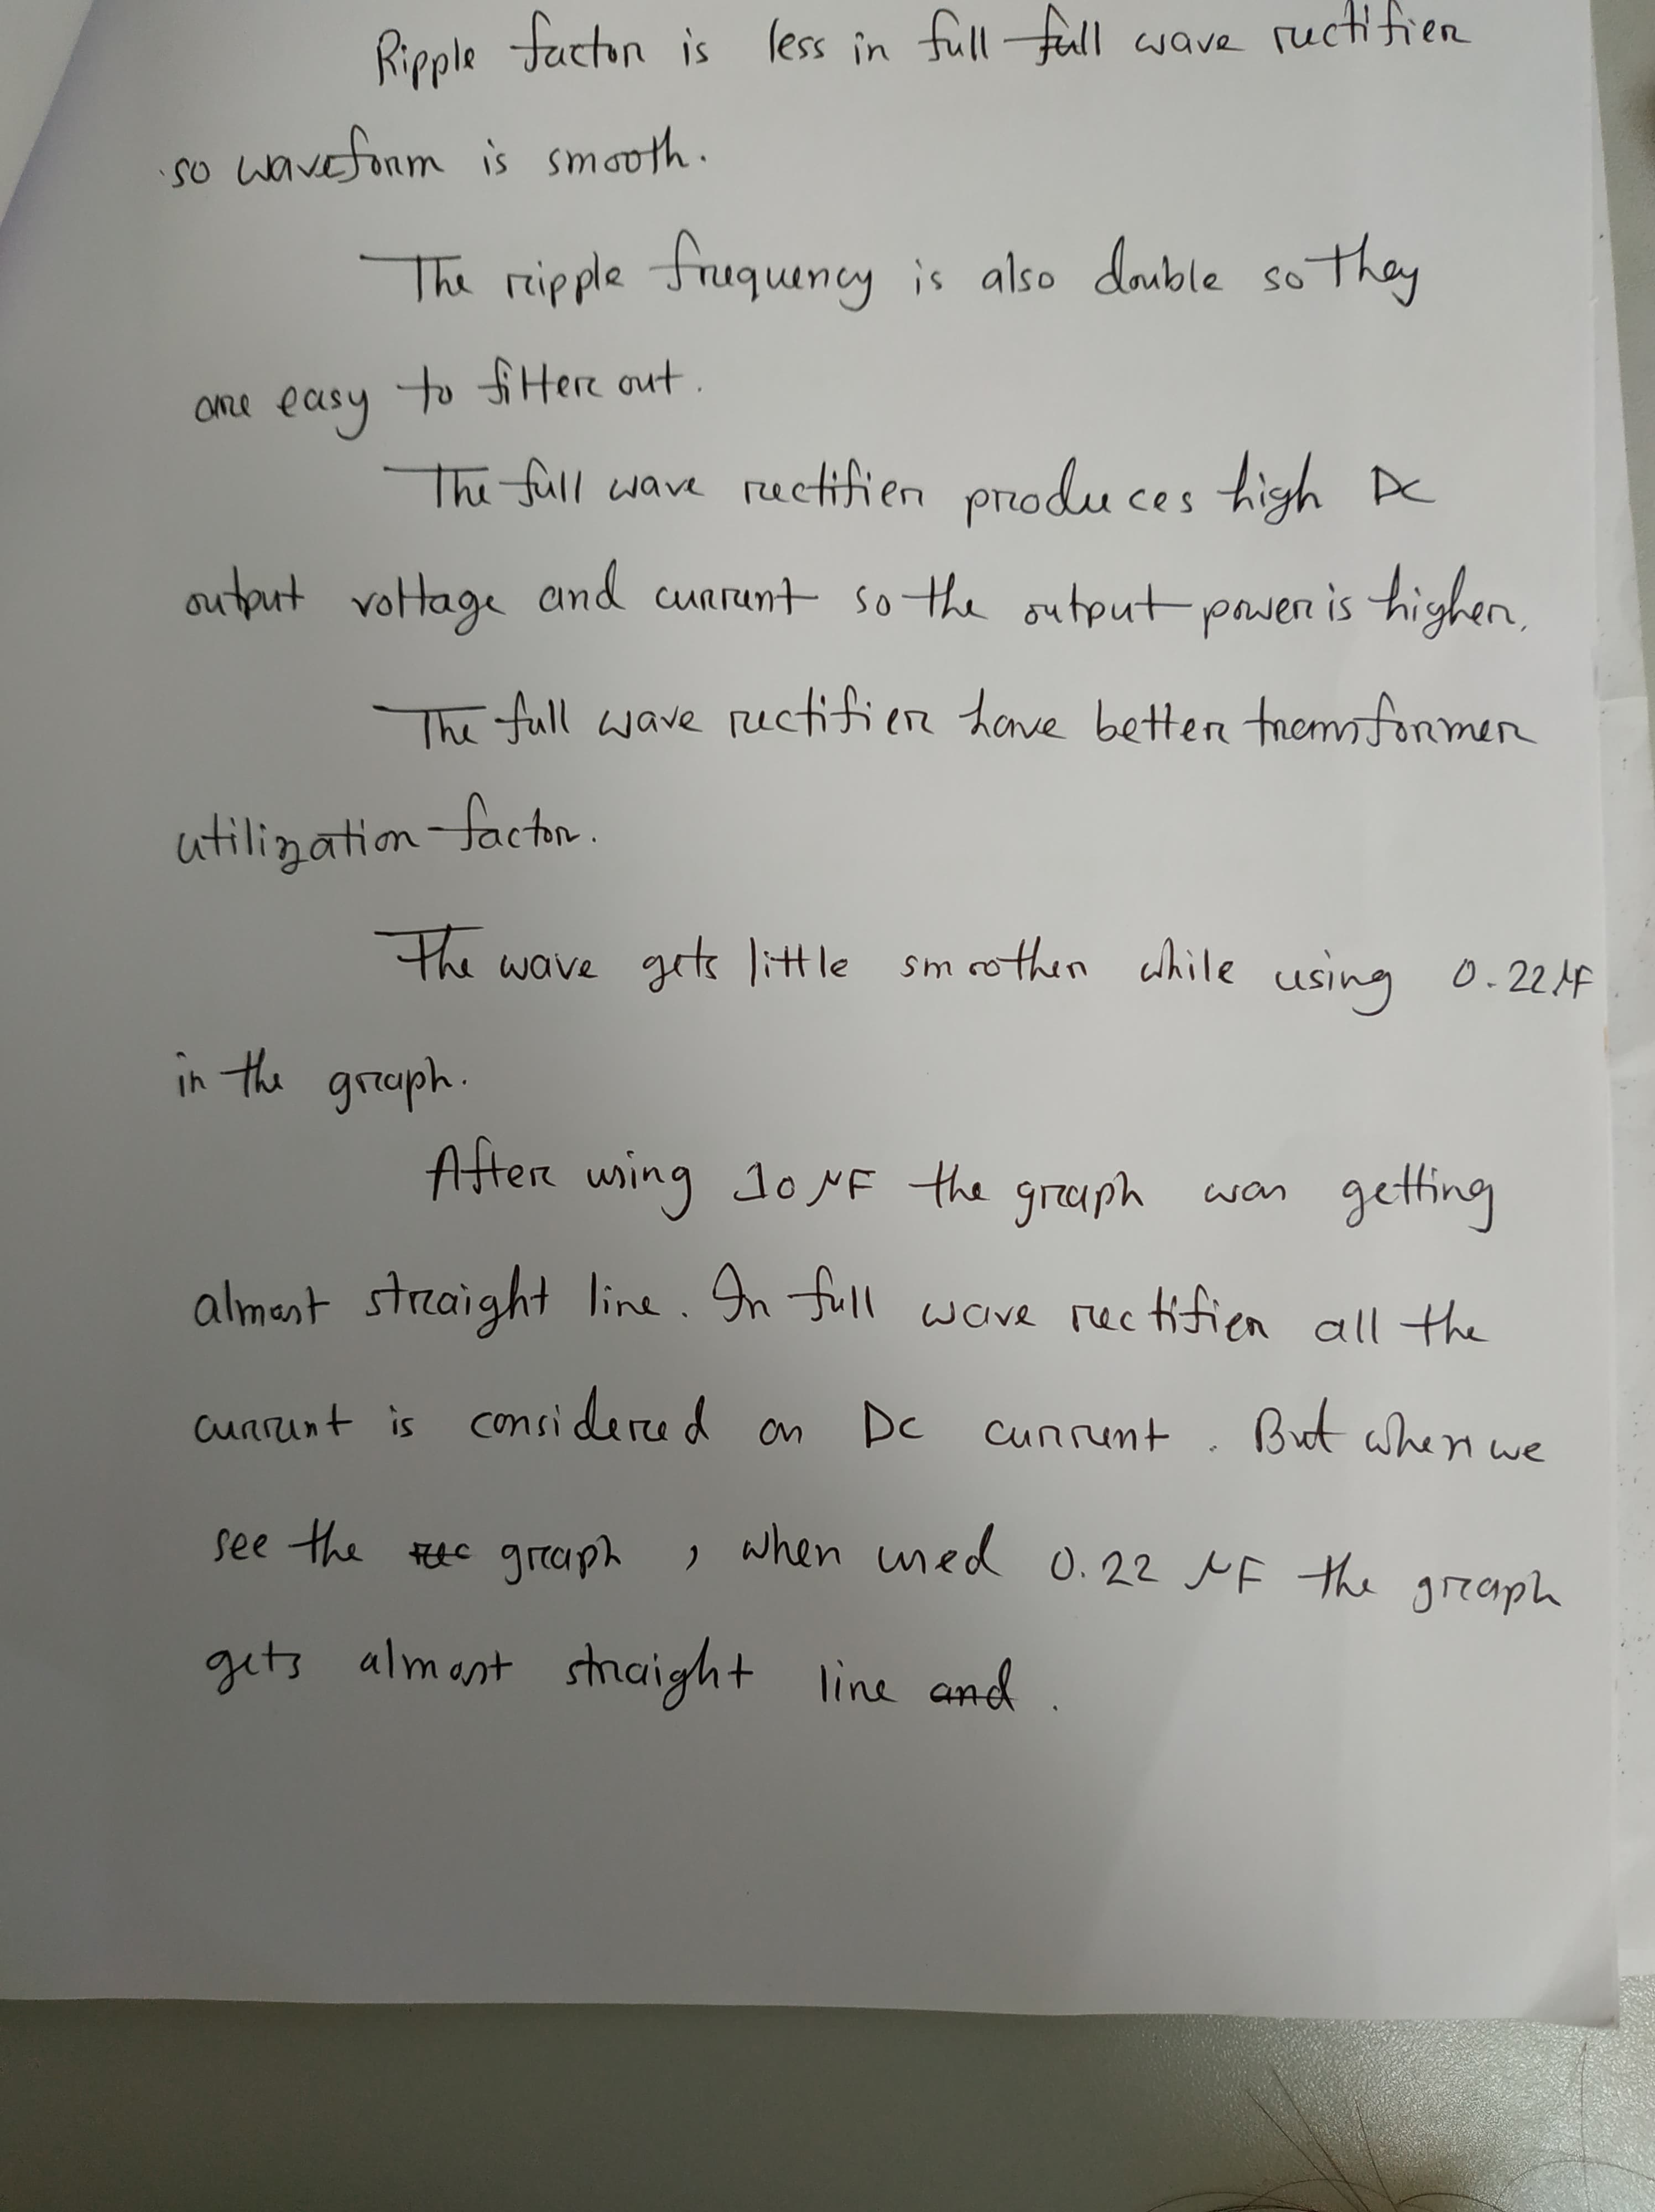 Ripple factor is less in full full wave rectifier
so waveform is smooth.
The ripple frequency is also double so they
are easy to filter out.
The full wave rectifier produces high DC
output voltage and current so the output power is higher.
The full wave rectifier have better transformer
utilization factor.
The wave gets little smoother while using 0.22 μF
in the graph.
After using 10 μF the graph was getting
almost straight line. In full wave rectifier all the
current is considered as DC current. But when we
see the rec graph, when used 0.22 μF the graph
gets almost straight line and.